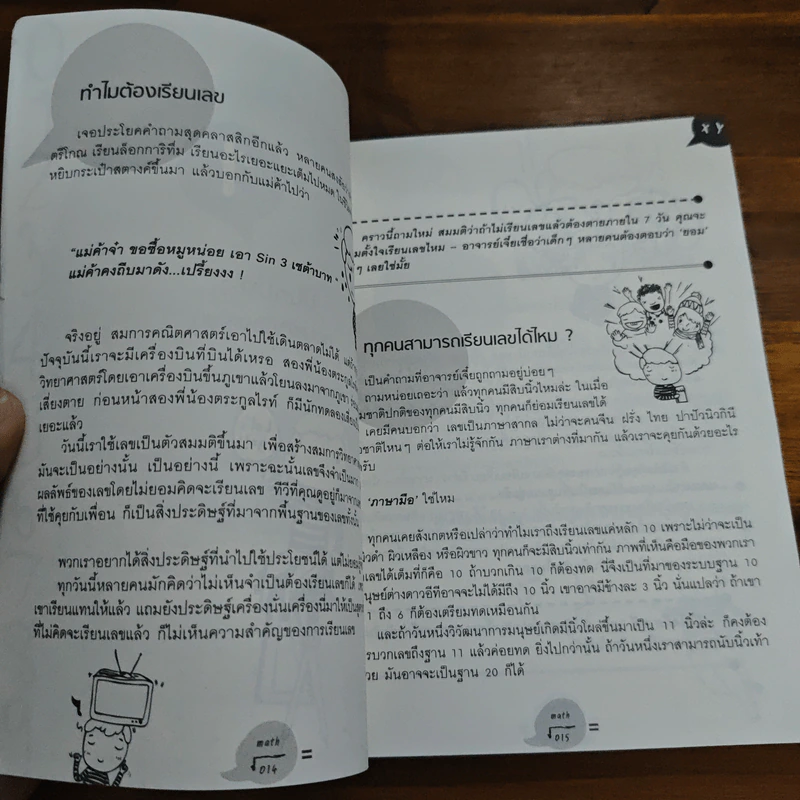 ทำไมต้องเรียนเลข
เจอประโยคคำถามสุดคลาสสิกอีกแล้ว หลายคน
ตรีโกณ เรียนล็อกการิทึ่ม เรียนอะไรเยอะแยะเต็มไปหมด
หยิบกระเป๋าสตางค์ขึ้นมา แล้วบอกกับแม่ค้าไปว่า
"แม่ค้าจ๋า ขอซื้อหมูหน่อย เอา Sin 3 เซต้าบาท"
แม่ค้าคงถีบมาดัง...เปรี้ยงงง !
จริงอยู่ สมการคณิตศาสตร์เอาไปใช้เดินตลาดไม่ได้
ปัจจุบันนี้เราจะมีเครื่องบินที่บินได้เหรอ สองพี่น้องตระกูลไรท์
วิทยาศาสตร์โดยเอาเครื่องบินขึ้นภูเขาแล้วโยนลงมาจากภูเขา
เสี่ยงตาย ก่อนหน้าสองพี่น้องตระกูลไรท์ ก็มีนักทดลอง
เยอะแล้ว
วันนี้เราใช้เลขเป็นตัวสมมติขึ้นมา เพื่อสร้างสมการวิทยา
มันจะเป็นอย่างนั้น เป็นอย่างนี้ เพราะฉะนั้นเลขจึงจำเป็นมาก
ผลลัพธ์ของเลขโดยไม่ยอมคิดจะเรียนเลข ทีวีที่คุณดูอยู่ก็มาจาก
ที่ใช้คุยกับเพื่อน ก็เป็นสิ่งประดิษฐ์ที่มาจากพื้นฐานของเลขทั้งนั้น
พวกเราอยากได้สิ่งประดิษฐ์ที่นำไปใช้ประโยชน์ได้ แต่ไม่ยอม
ทุกวันนี้หลายคนมักคิดว่าไม่เห็นจำเป็นต้องเรียนเลขก็ได้
เขาเรียนแทนให้แล้ว แถมยังประดิษฐ์เครื่องนั่นเครื่องนี่มาให้เป็น
ที่ไม่คิดจะเรียนเลขแล้ว ก็ไม่เห็นความสำคัญของการเรียนเลข
math
014 =
X Y
คราวนี้ถามใหม่ สมมติว่าถ้าไม่เรียนเลขแล้วต้องตายภายใน 7 วัน คุณจะ
มตั้งใจเรียนเลขไหม – อาจารย์เจี๋ยเชื่อว่าเด็กๆ หลายคนต้องตอบว่า 'ยอม'
ๆ เลยใช่มั้ย
ทุกคนสามารถเรียนเลขได้ไหม ?
เป็นคำถามที่อาจารย์เจี๋ยถูกถามอยู่บ่อยๆ
ถามหน่อยเถอะว่า แล้วทุกคนมีสิบนิ้วไหมล่ะ ในเมื่อ
มชาติปกติของทุกคนมีสิบนิ้ว ทุกคนก็ย่อมเรียนเลขได้
เคยมีคนบอกว่า เลขเป็นภาษาสากล ไม่ว่าจะคนจีน ฝรั่ง ไทย ปาปัวนิวกินี
ชาติไหนๆ ต่อให้เราไม่รู้จักกัน ภาษาเราต่างที่มากัน แล้วเราจะคุยกันด้วยอะไร
รับ
'ภาษามือ' ใช่ไหม
ทุกคนเคยสังเกตหรือเปล่าว่าทำไมเราถึงเรียนเลขแค่หลัก 10 เพราะไม่ว่าจะเป็น
ผิวดำ ผิวเหลือง หรือผิวขาว ทุกคนก็จะมีสิบนิ้วเท่ากัน ภาพที่เห็นคือมือของพวกเรา
เลขได้เต็มที่ก็คือ 10 ถ้าบวกเกิน 10 ก็ต้องทด นี่จึงเป็นที่มาของระบบฐาน 10
นุษย์ต่างดาวอีทีอาจจะไม่ได้มีถึง 10 นิ้ว เขาอาจมีข้างละ 3 นิ้ว นั่นแปลว่า ถ้าเขา
1 ถึง 6 ก็ต้องเตรียมทดเหมือนกัน
และถ้าวันหนึ่งวิวัฒนาการมนุษย์เกิดมีนิ้วโผล่ขึ้นมาเป็น 11 นิ้วล่ะ ก็คงต้อง
รบวกเลขถึงฐาน 11 แล้วค่อยทด ยิ่งไปกว่านั้น ถ้าวันหนึ่งเราสามารถนับนิ้วเท้า
วย มันอาจจะเป็นฐาน 20 ก็ได้
math
015 =